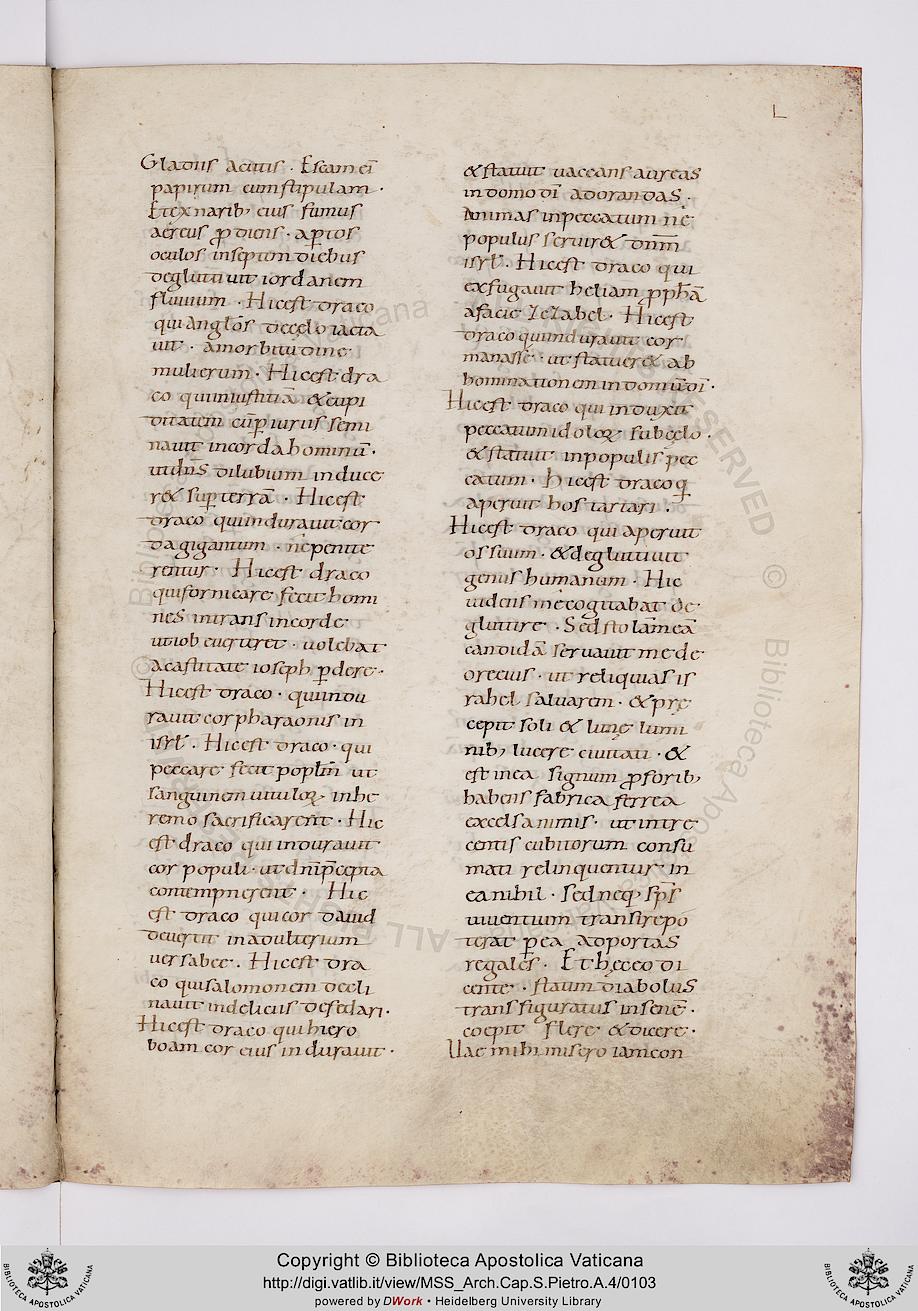 L
Gladiis acutis . Escam eī
papirum cum stipulam .
Et ex narib; eius fumus
aereus ꝓdiens . aꝑtos
oculos inseptem diebus
degluttiuit iordanem
fluuium . Hic est draco
qui anglōs decęlo iacta
uit . amorbitudine
mulierum . Hic est dra
co qui iniustitiā & cupi
ditatem cūꝑiuriis semi
nauit incorda hominū .
utdn̄s diluuium induce
r& suꝑ terrā . Hic est
draco qui indurauit cor
da gigantum . ne penite
rentur . Hic est draco
qui fornicare fecit homi
nes intrans in corde
ut iob euerteret . uolebat
acastitate ioseph ꝑdere .
Hic est draco . qui indu
rauit cor pharaonis in
isrł . Hic est draco . qui
peccare fecit poplm̄ ut
sanguinem uituloꝝ inhe
remo sacrificarent . Hic
est draco qui indurauit
cor populi . ut dnīp̄cepta
contempnerent . Hic
est draco qui cor dauid
deuertit in adulterium
uersabee . Hic est dra
co qui salomonem decli
nauit in deliciis desedari .
Hic est draco qui hiero
boam cor eius indurauit .
& statuit uaccans aureas
in domo dī adorandas .
Animas inpeccatum ne
populus seruir& dnm̄
isrł . Hic est draco qui
exfugauit heliam ꝓphā
afacie Iezabel . Hic est
draco qui indurauit cor
manasse . ut statuer& ab
hominationem in domū dī .
Hic est draco qui induxit
peccatum idoloꝝ sub cęlo .
& statuit in populis pec
catum . hic est draco q
aperuit hos tartari .
Hic est draco qui aperuit
os suum . & degluttiuit
genus humanum . Hic
uidens me cogitabat de
gluttire . Sed stolām eā
candidā seruauit me de
ore eius . ut reliquias is
rahel saluarem . & prę
cepit soli & lunę lumi
nib; lucere ciuitati . &
est in ea signum ꝓ forib;
habens fabrica ferrea
excelsa nimis . ut intre
centis cubitorum consu
mati relinquentur in
ea nihil . sed neq; sp̄s
uiuentium transire po
terat ꝑ ea ad portas
regales . Et hęc eo di
cente . statim diabolus
transfiguratus in senē .
coepit flere & dicere .
Uae mihi misero iam con
Copyright © Biblioteca Apostolica Vaticana
http://digi.vatlib.it/view/MSS_Arch.Cap.S.Pietro.A.4/0103
powered by DWork • Heidelberg University Library
BIBLIOTECA APOSTOLICA VATICANA
BIBLIOTECA APOSTOLICA VATICANA